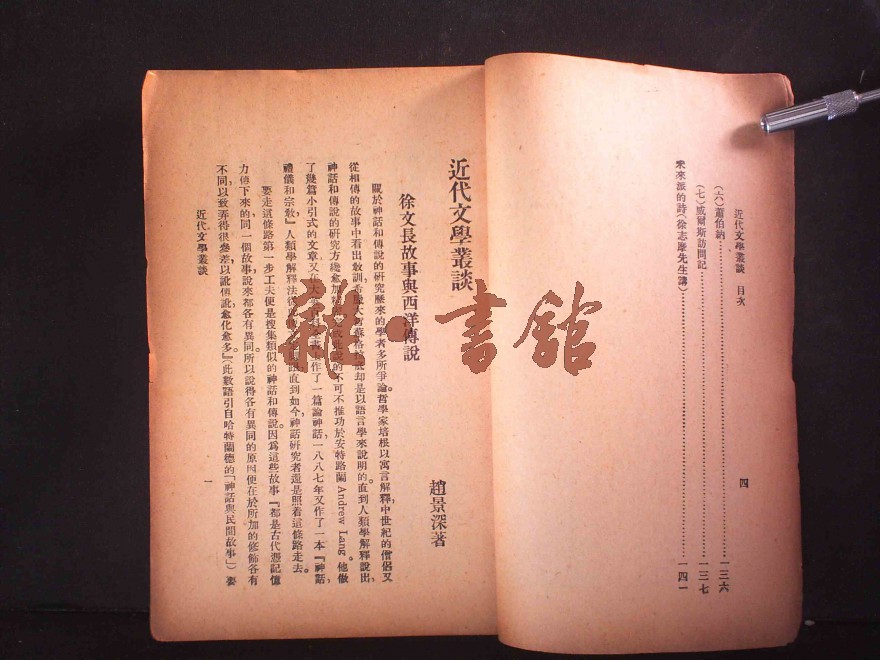 近代文學叢談 目次
四
(六)蕭伯訥……一三六
(七)威爾斯訪問記……一三七
未來派的詩(徐志摩先生講)……一四一
近代文學叢談
趙景深著
徐文長故事與西洋傳說
關於神話和傳說的研究歷來的學者多所爭論。哲學家培根以寓言解釋,中世紀的僧侶又
從相傳的故事中看出教訓,希臘大
却是以語言學來說明的。直到人類學解釋說出,
神話和傳說的研究方纔愈加
的不可不推功於安特路蘭 Andrew Lang。他做
了幾篇小引式的文章又在大
作了一篇論神話,一八八七年又作了一本『神話,
禮儀和宗教』人類學解釋法從
直到如今,神話研究者還是照着這條路走去。
要走這條路第一步工夫便是搜集類似的神話和傳說。因爲這些故事『都是古代憑記憶
力傳下來的,同一個故事,說來都各有異同。所以說得各有異同的原因便在於所加的修飾各有
不同,以致弄得很參差,以訛傳訛,愈化愈多。』(此數語引自哈特蘭德的『神話與民間故事』)要
近代文學叢談
一
龍·書館